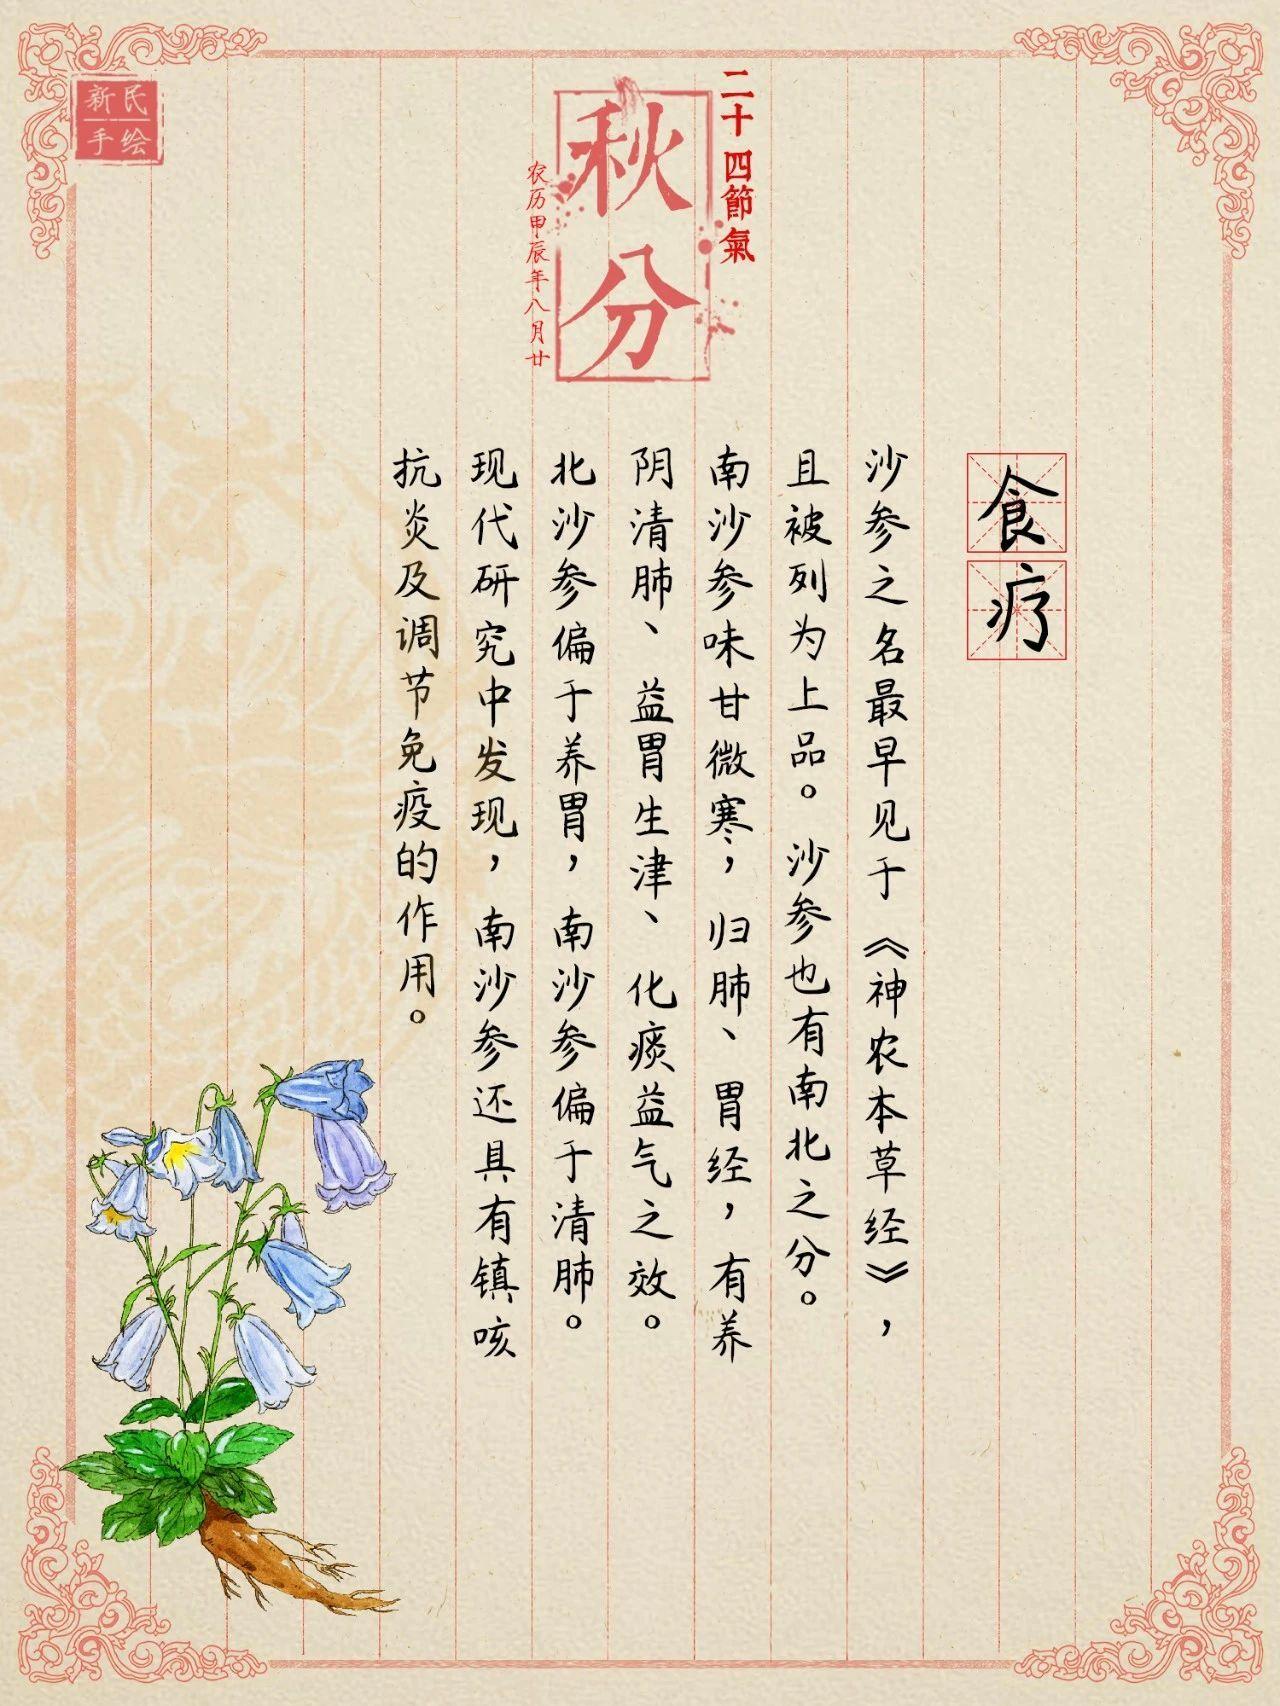 新民
手绘
二十四節氣
秋分
农历甲辰年八月廿
食疗
沙参之名最早见于《神农本草经》，
且被列为上品。沙参也有南北之分。
南沙参味甘微寒，归肺、胃经，有养
阴清肺、益胃生津、化痰益气之效。
北沙参偏于养胃，南沙参偏于清肺。
现代研究中发现，南沙参还具有镇咳
抗炎及调节免疫的作用。